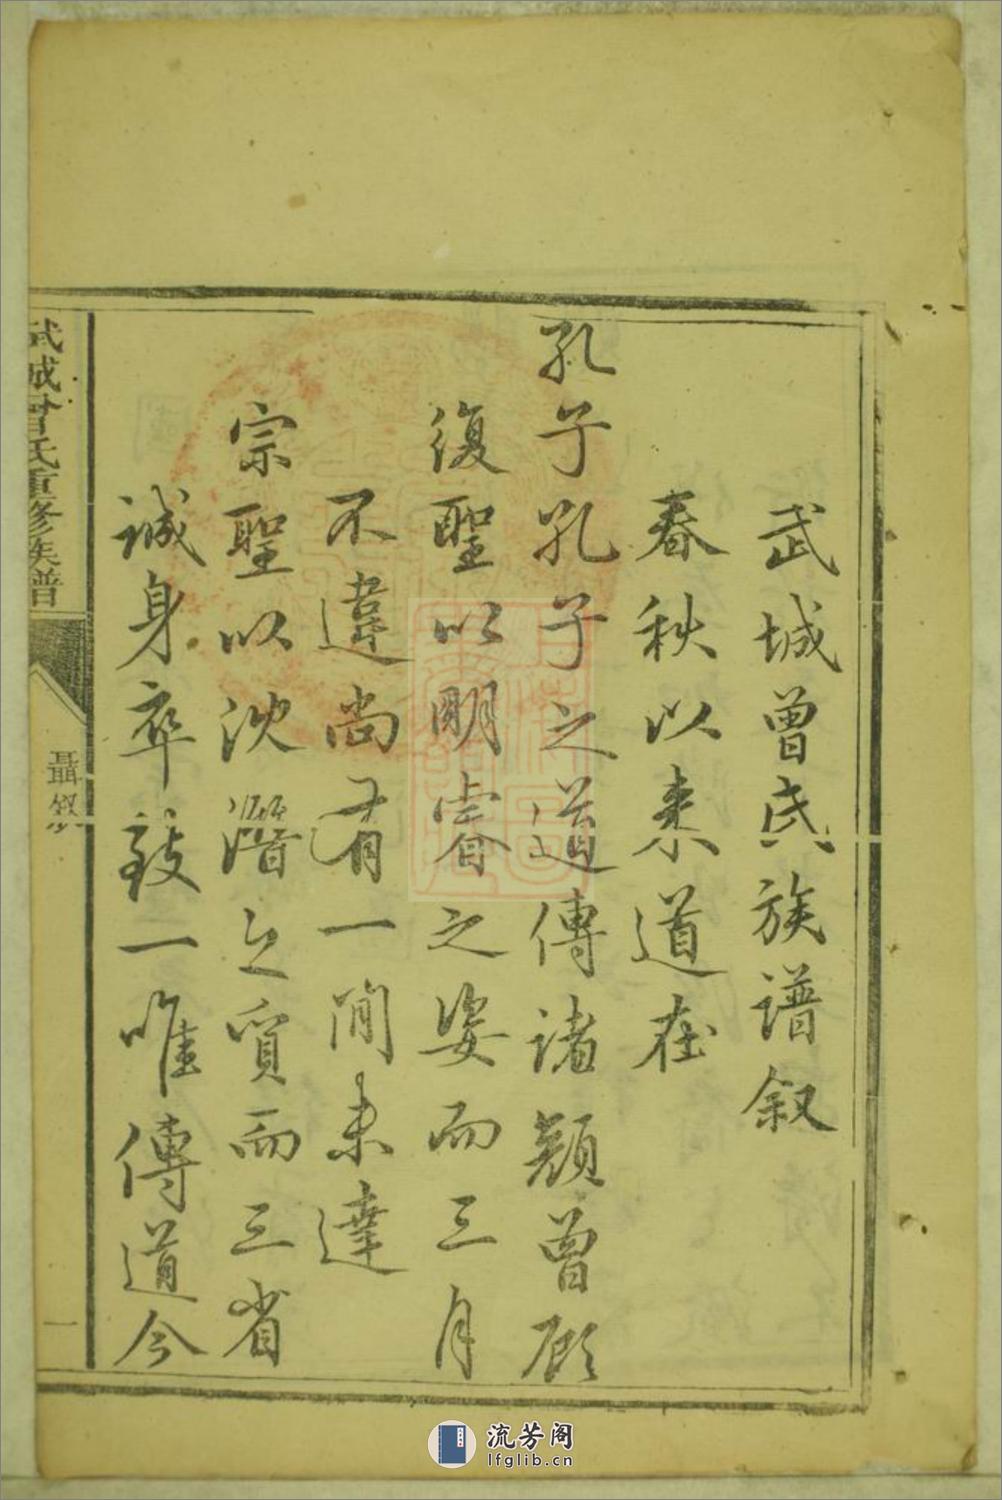 武城曾氏族譜叙
春秋以来道在
孔子孔子之道傳諸顏曾顧
復聖以明睿之姿而三月
不違尚有一間未達
宗聖以沈潛之質而三省
誠身卒致一唯傳道今
武城曾氏重修族譜
聶叙
一
流芳阁
lfglib.cn